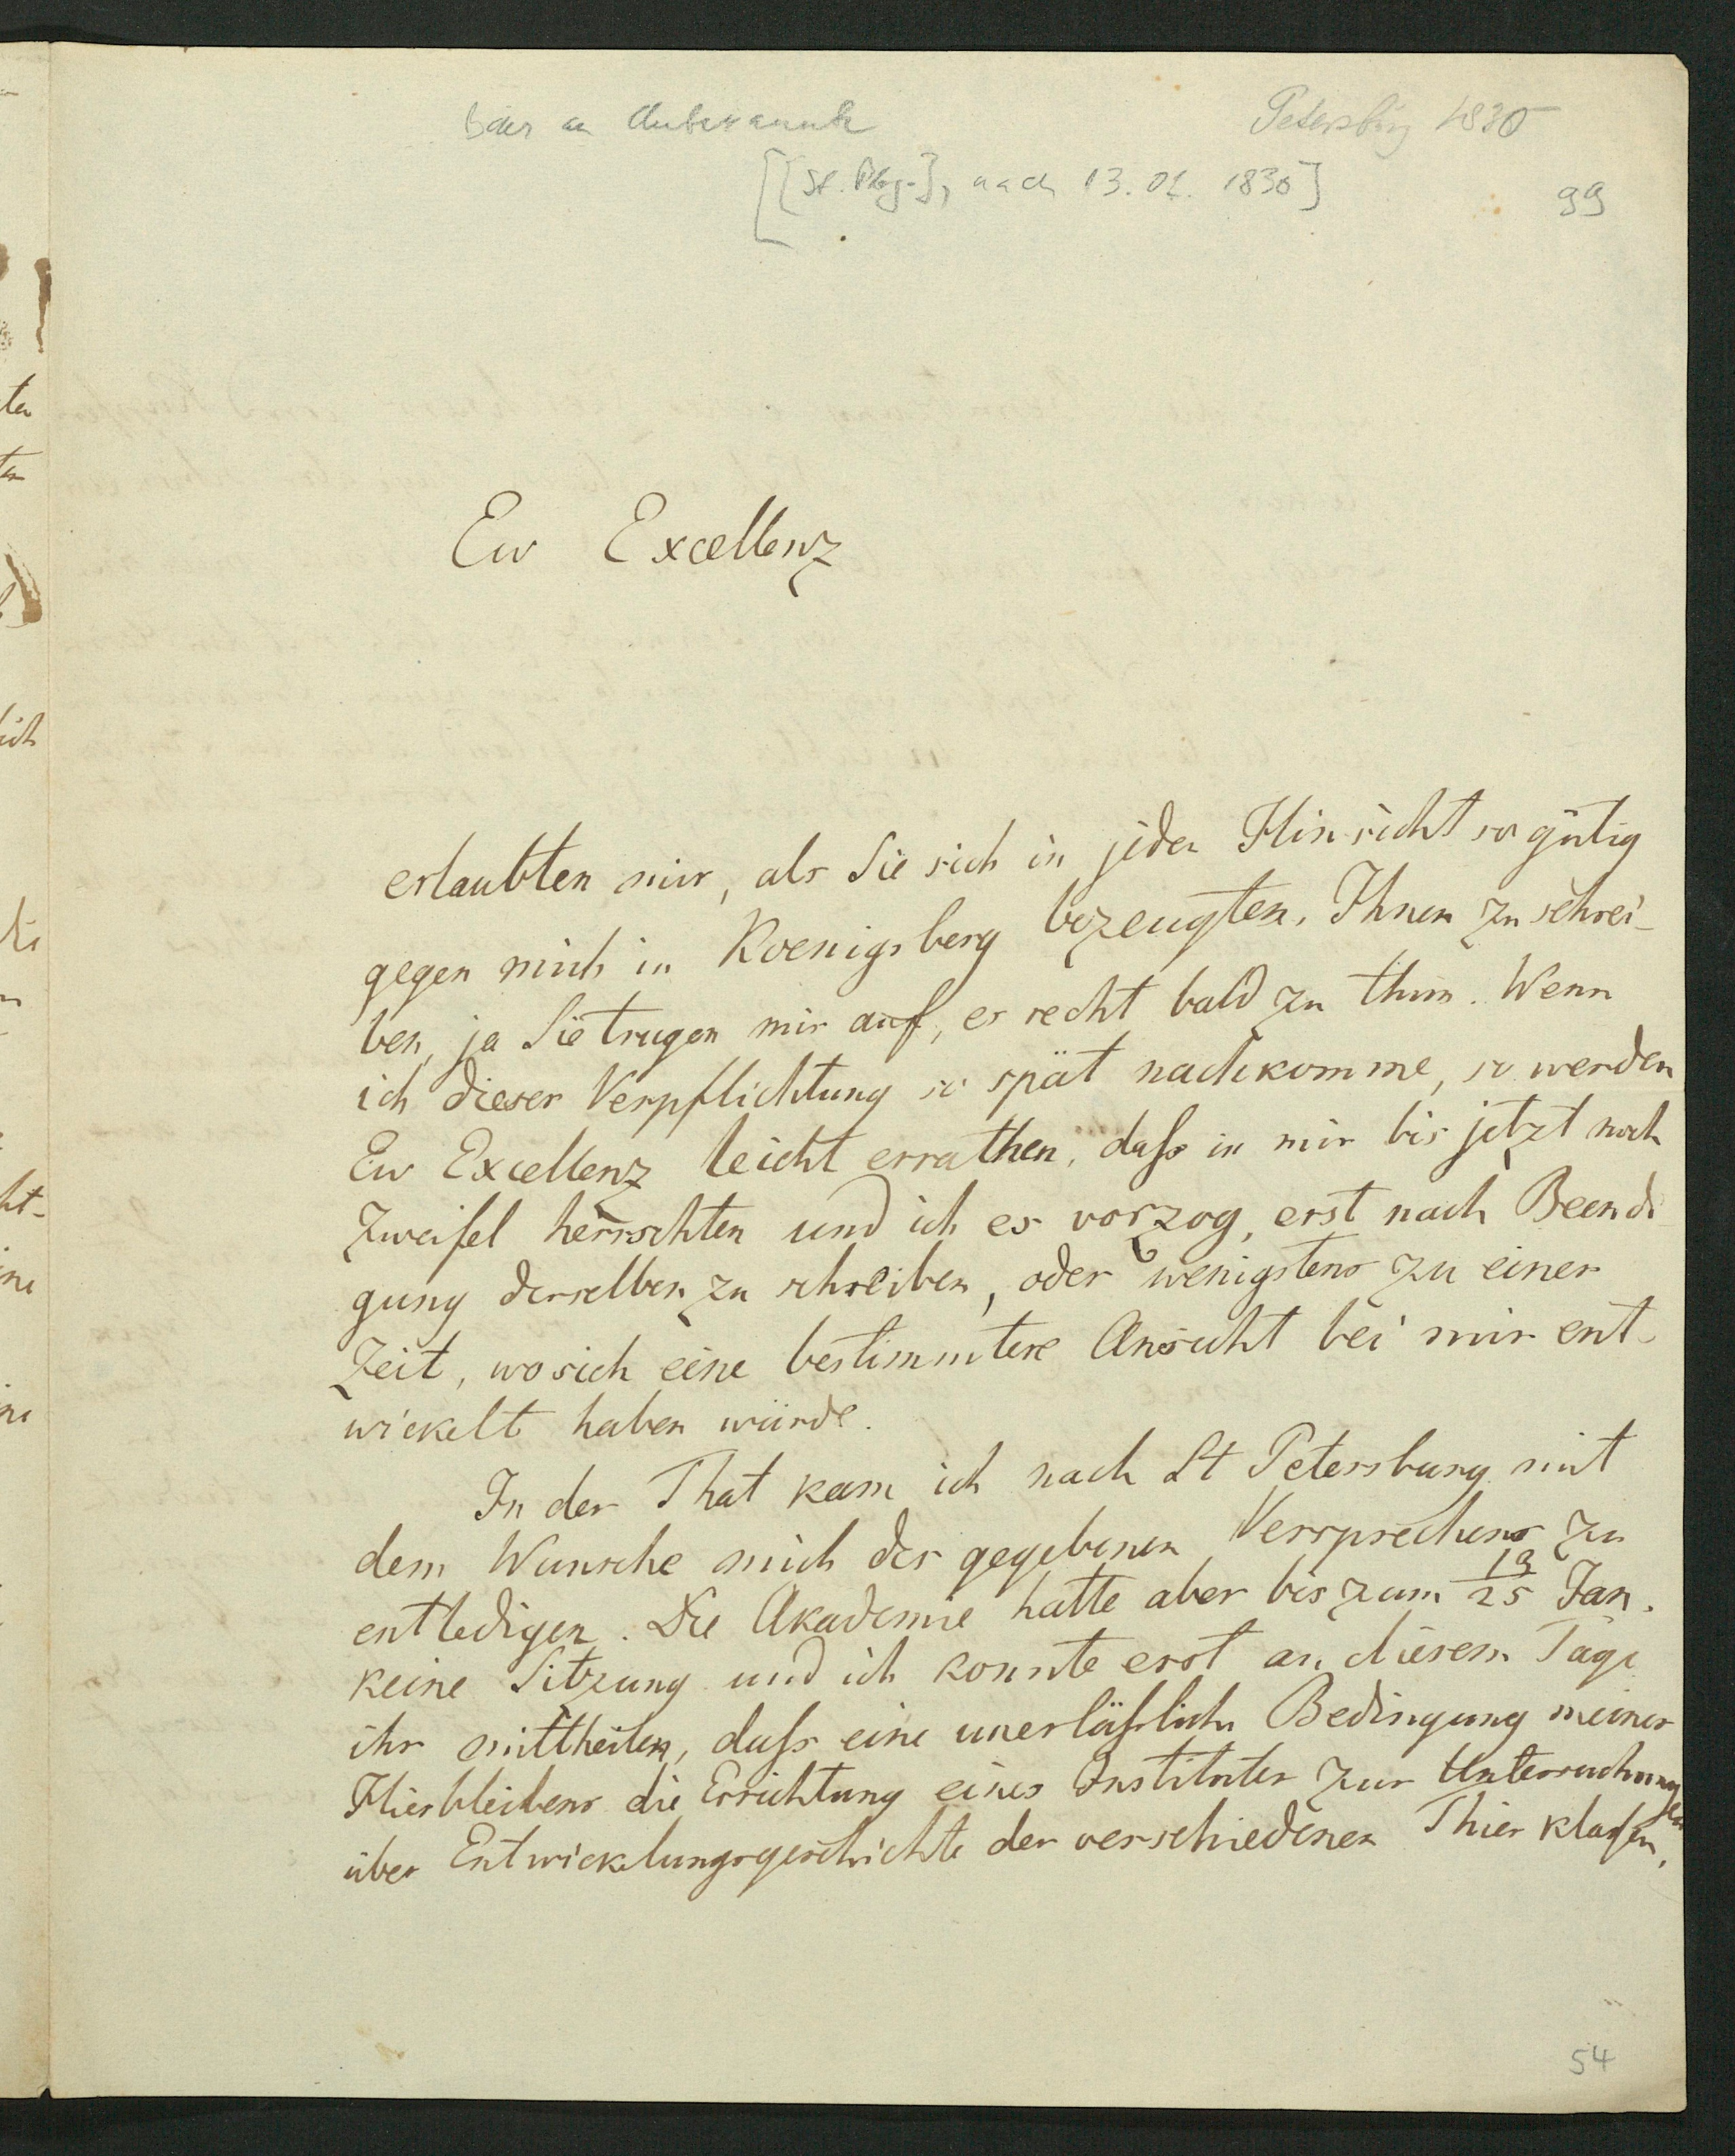 Baer an Unbekannt
Petersburg 1830
[[St. Pbg.], nach 13.01. 1830]
99
Ew Excellenz
erlaubten mir, als Sie sich in jeder Hinsicht so gütig
gegen mich in Koenigsberg bezeugten, Ihnen zu schrei-
ben, ja Sie trugen mir auf, es recht bald zu thun. Wenn
ich dieser Verpflichtung so spät nachkomme, so werden
Ew Excellenz leicht errathen, daſs in mir bis jetzt noch
Zweifel herrschten und ich es vorzog, erst nach Beendi
gung derselben zu schreiben, oder wenigstens zu einer
Zeit, wo sich eine bestimmtere Ansicht bei mir ent-
wickelt haben würde.
In der That kam ich nach St Petersburg mit
dem Wunsche mich des gegebenen Versprechens zu
entledigen. Die Akademie hatte aber bis zum 13/25 Jan.
keine Sitzung und ich konnte erst an diesem Tage
ihr mittheilen, daſs eine unerläſsliche Bedingung meines
Hierbleibens die Errichtung eines Institutes zur Untersuchungen
über Entwickelungsgeschichte der verschiedenen Thierklaſsen,
54